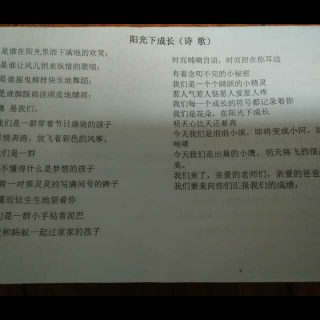 阳光下成长（诗 歌）
是谁在阳光里洒下满地的欢笑；
是谁让风儿捎来纵情的歌唱；
是谁摇曳榕枝快乐地舞蹈；
是谁脚踩滑顽皮地嬉闹；
噢 是我们。
我们是一群穿着节日盛装的孩子
尽情奔跑，放飞着彩色的风筝。
我们是一群
不懂得什么是梦想的孩子
着一对熊灵灵的写满问号的眸子
懂而怯生生地望着你
们是一群小手粘着泥巴
和蚂蚁一起过家家的孩子
时而喃喃自语，时而附在你耳边
有着念叨不完的小秘密
我们是一个个跳跃的小精灵
惹人气惹人恼惹人爱惹人疼
我们每一个成长的符号都记录着你
我们是花朵，在阳光下成长
明天心比天还要高
今天我们是涓涓小溪，即将变成小河，
咆哮
今天我们是出巢的小鹰，明天将飞的很
高。
我们来了，亲爱的老师们，亲爱的爸爸
我们要来向你们汇报我们的成绩；